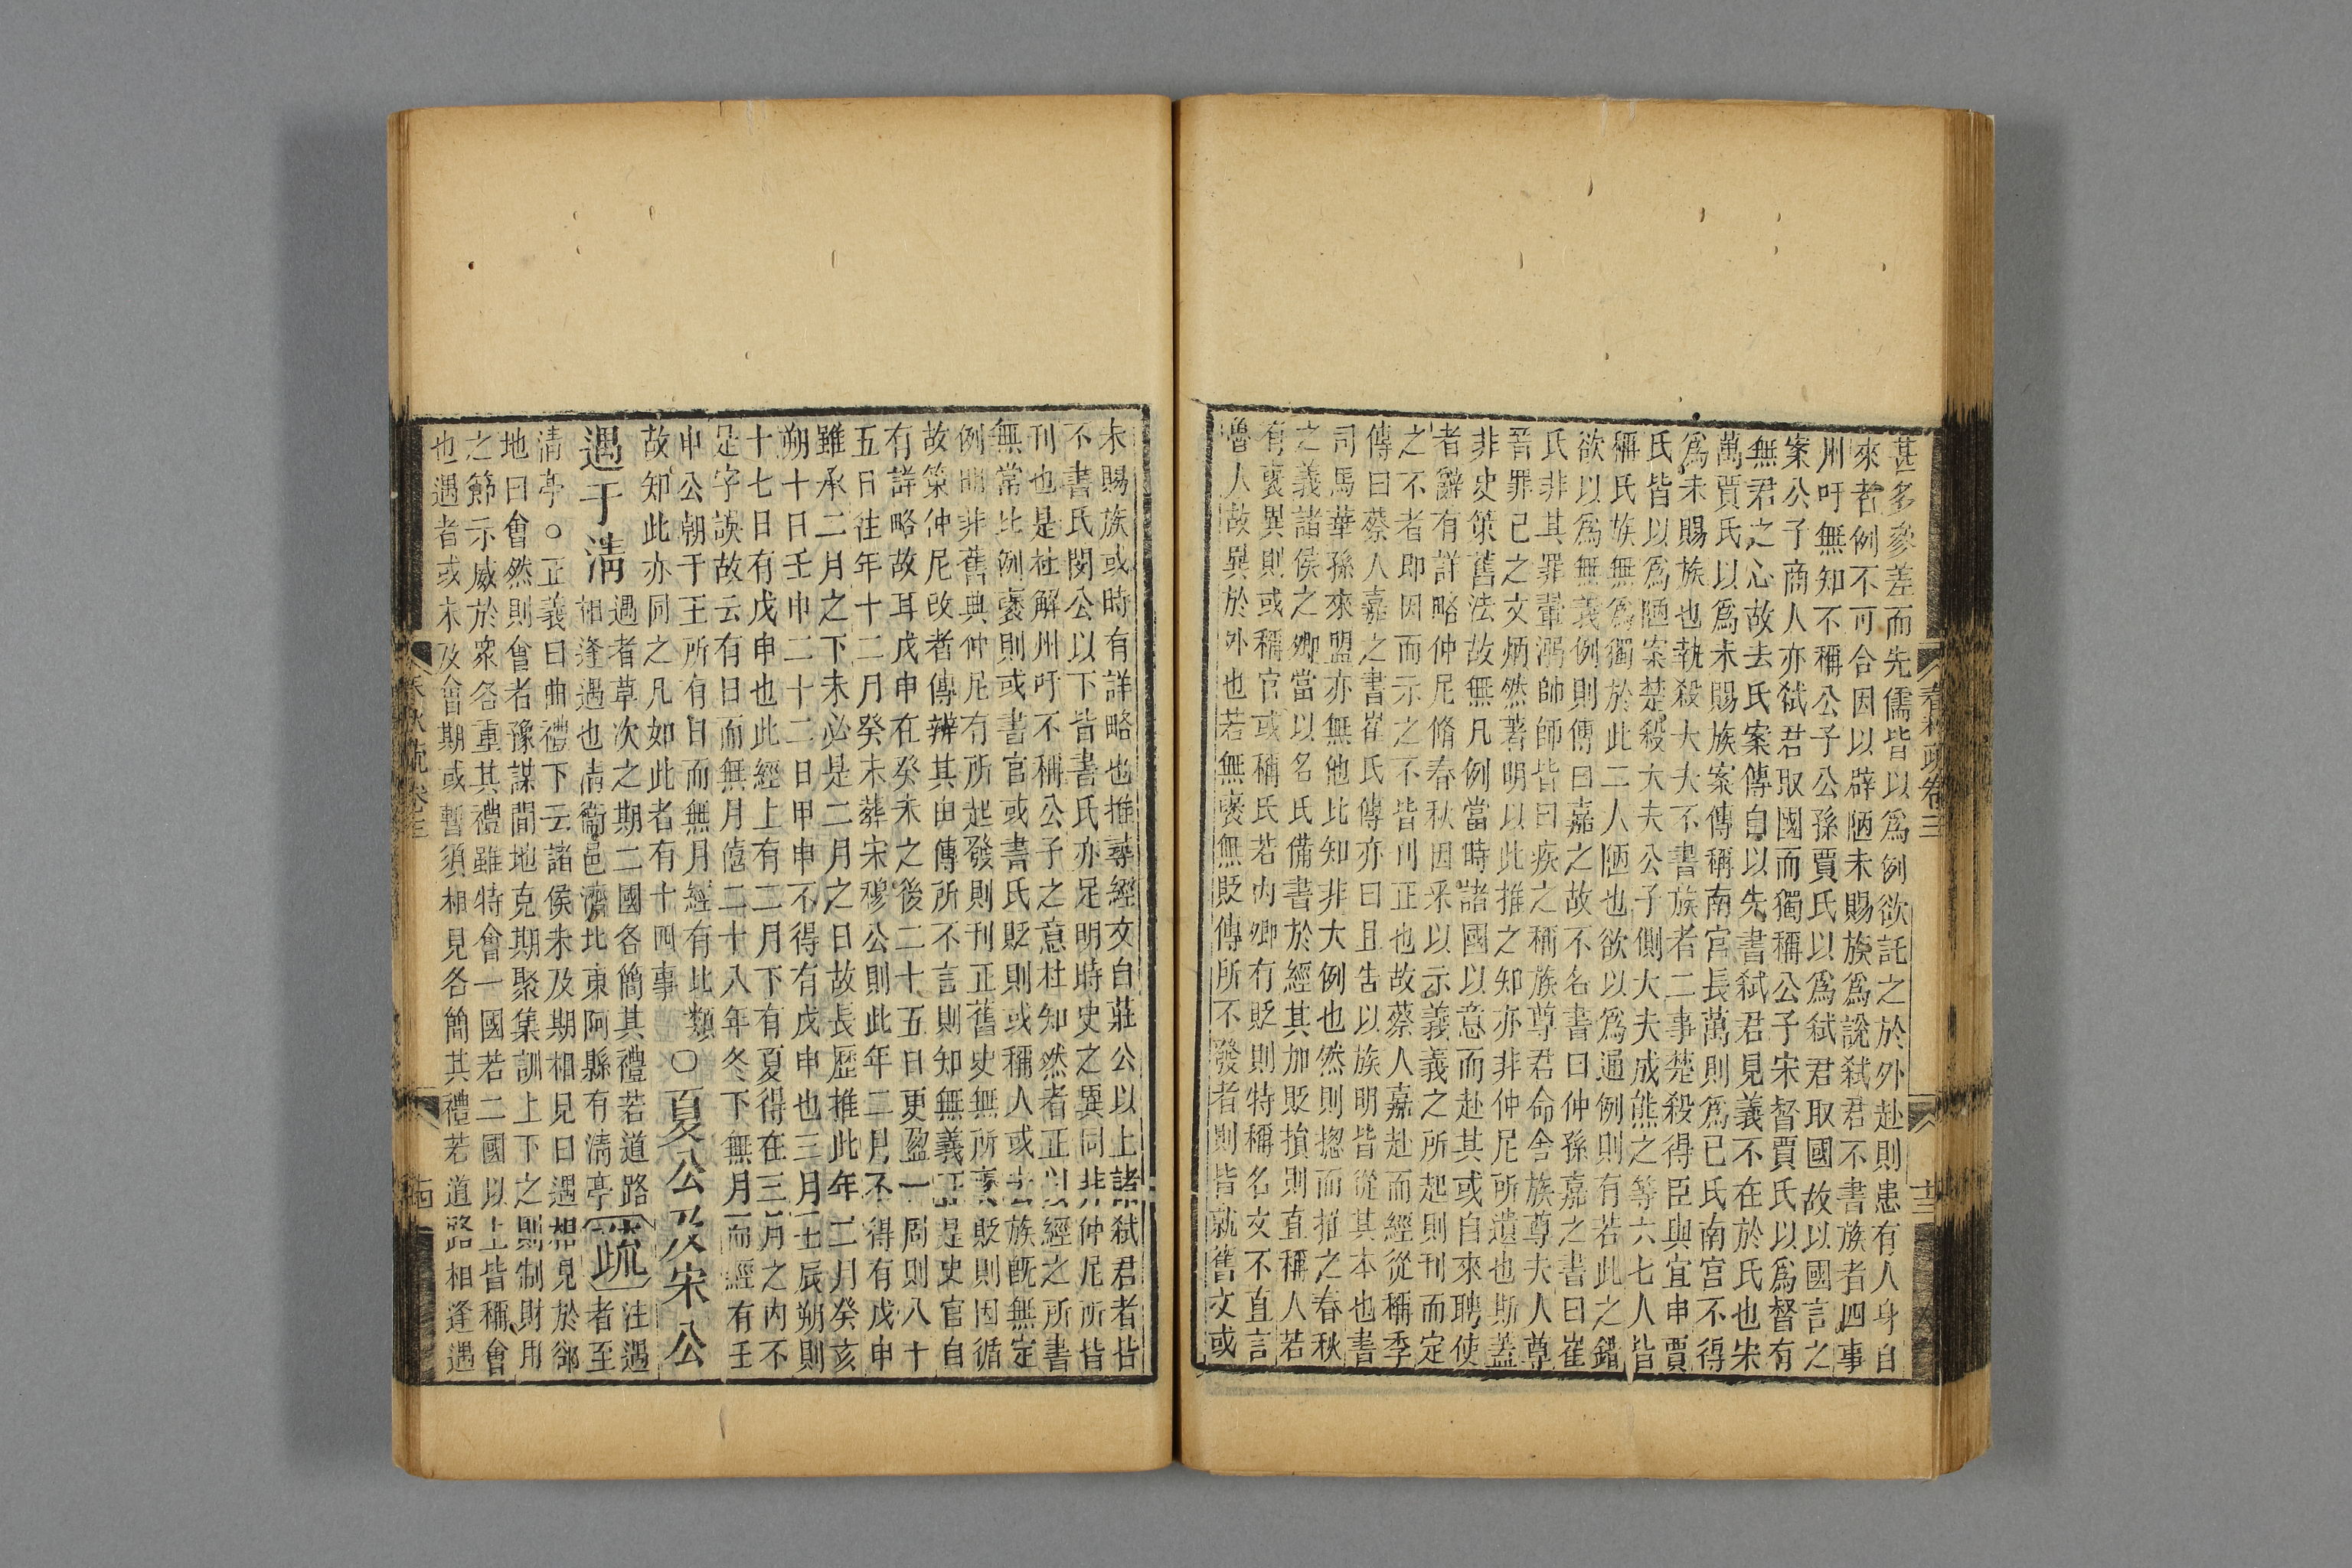 甚多參差而先儒皆以為例欲託之於外赴則患有人身自
來者例不可合因以辟陋未賜族為說弒君不書族者四事
州吁無知不稱公子公孫賈氏以為弒君取國故以國言之
案公子商人亦弒君取國而獨稱公子宋督賈氏以為督有
無君之心故去氏案傳自以先書弒君見義不在於氏也宋
萬賈氏以為未賜族案傳稱南宮長萬則為已氏南宮不得
為未賜族也執殺大夫不書族者二事楚殺得臣與宜申賈
氏皆以為陋案楚殺大夫公子側大夫成熊之等六七人皆
稱氏族無為獨於此二人陋也欲以為通例則有若此之錯
欲以為無義例則傳曰嘉之故不名書曰仲孫嘉之書曰崔
氏非其罪翬溺帥師皆曰疾之稱族尊君命舍族尊夫人尊
晉罪己之文炳然著明以此推之知亦非仲尼所遺也斯蓋
非史策舊法故無凡例當時諸國以意而赴其或自來聘使
者辭有詳略仲尼脩春秋因采以示義義之所起則刊而定
之不者即因而示之不皆刊正也故蔡人嘉赴而經從稱季
傳曰蔡人嘉之書崔氏傳亦曰且告以族明皆從其本也書
司馬華孫來盟亦無他比知非大例也然則揔而推之春秋
之義諸侯之卿當以名氏備書於經其加貶損則直稱人若
有褒異則或稱官或稱氏若內卿有貶則特稱名文不直言
魯人故異於外也若無褒無貶傳所不發者則皆就舊文或
春秋疏卷三
十三
未賜族或時有詳略也推尋經文自莊公以上諸弒君者皆
不書氏閔公以下皆書氏亦足明時史之異同非仲尼所皆
刊也是杜解州吁不稱公子之意杜知然者正以經之所書
無常比例褒則或書官或書氏貶則或稱人或去族既無定
例明非舊典仲尼有所起發則刊正舊史無所褒貶則因循
故策仲尼改者傳辨其由傳所不言則知無義正是史官自
有詳略故耳戊申在癸未之後二十五日更盈一周則八十
五日往年十二月癸未葬宋穆公則此年二月不得有戊申
雖承二月之下未必是二月之日故長歷推此年二月癸亥
朔十日壬申二十二日甲申不得有戊申也三月壬辰朔則
十七日有戊申也此經上有二月下有夏得在三月之內不
是字誤故云有日而無月僖二十八年冬下無月而經有壬
申公朝于王所有日而無月經有此類
故知此亦同之凡如此者有十四事○夏公及宋公
遇于清遇者草次之期二國各簡其禮若道路
相逢遇也清衞邑濟北東阿縣有清亭疏注遇者至
清亭○正義曰曲禮下云諸侯未及期相見曰遇相見於郤
地曰會然則會者豫謀間地克期聚集訓上下之則制財用
之節示威於眾各重其禮雖特會一國若二國以上皆稱會
也遇者或未及會期或暫須相見各簡其禮若道路相逢遇
春秋疏卷三
十四